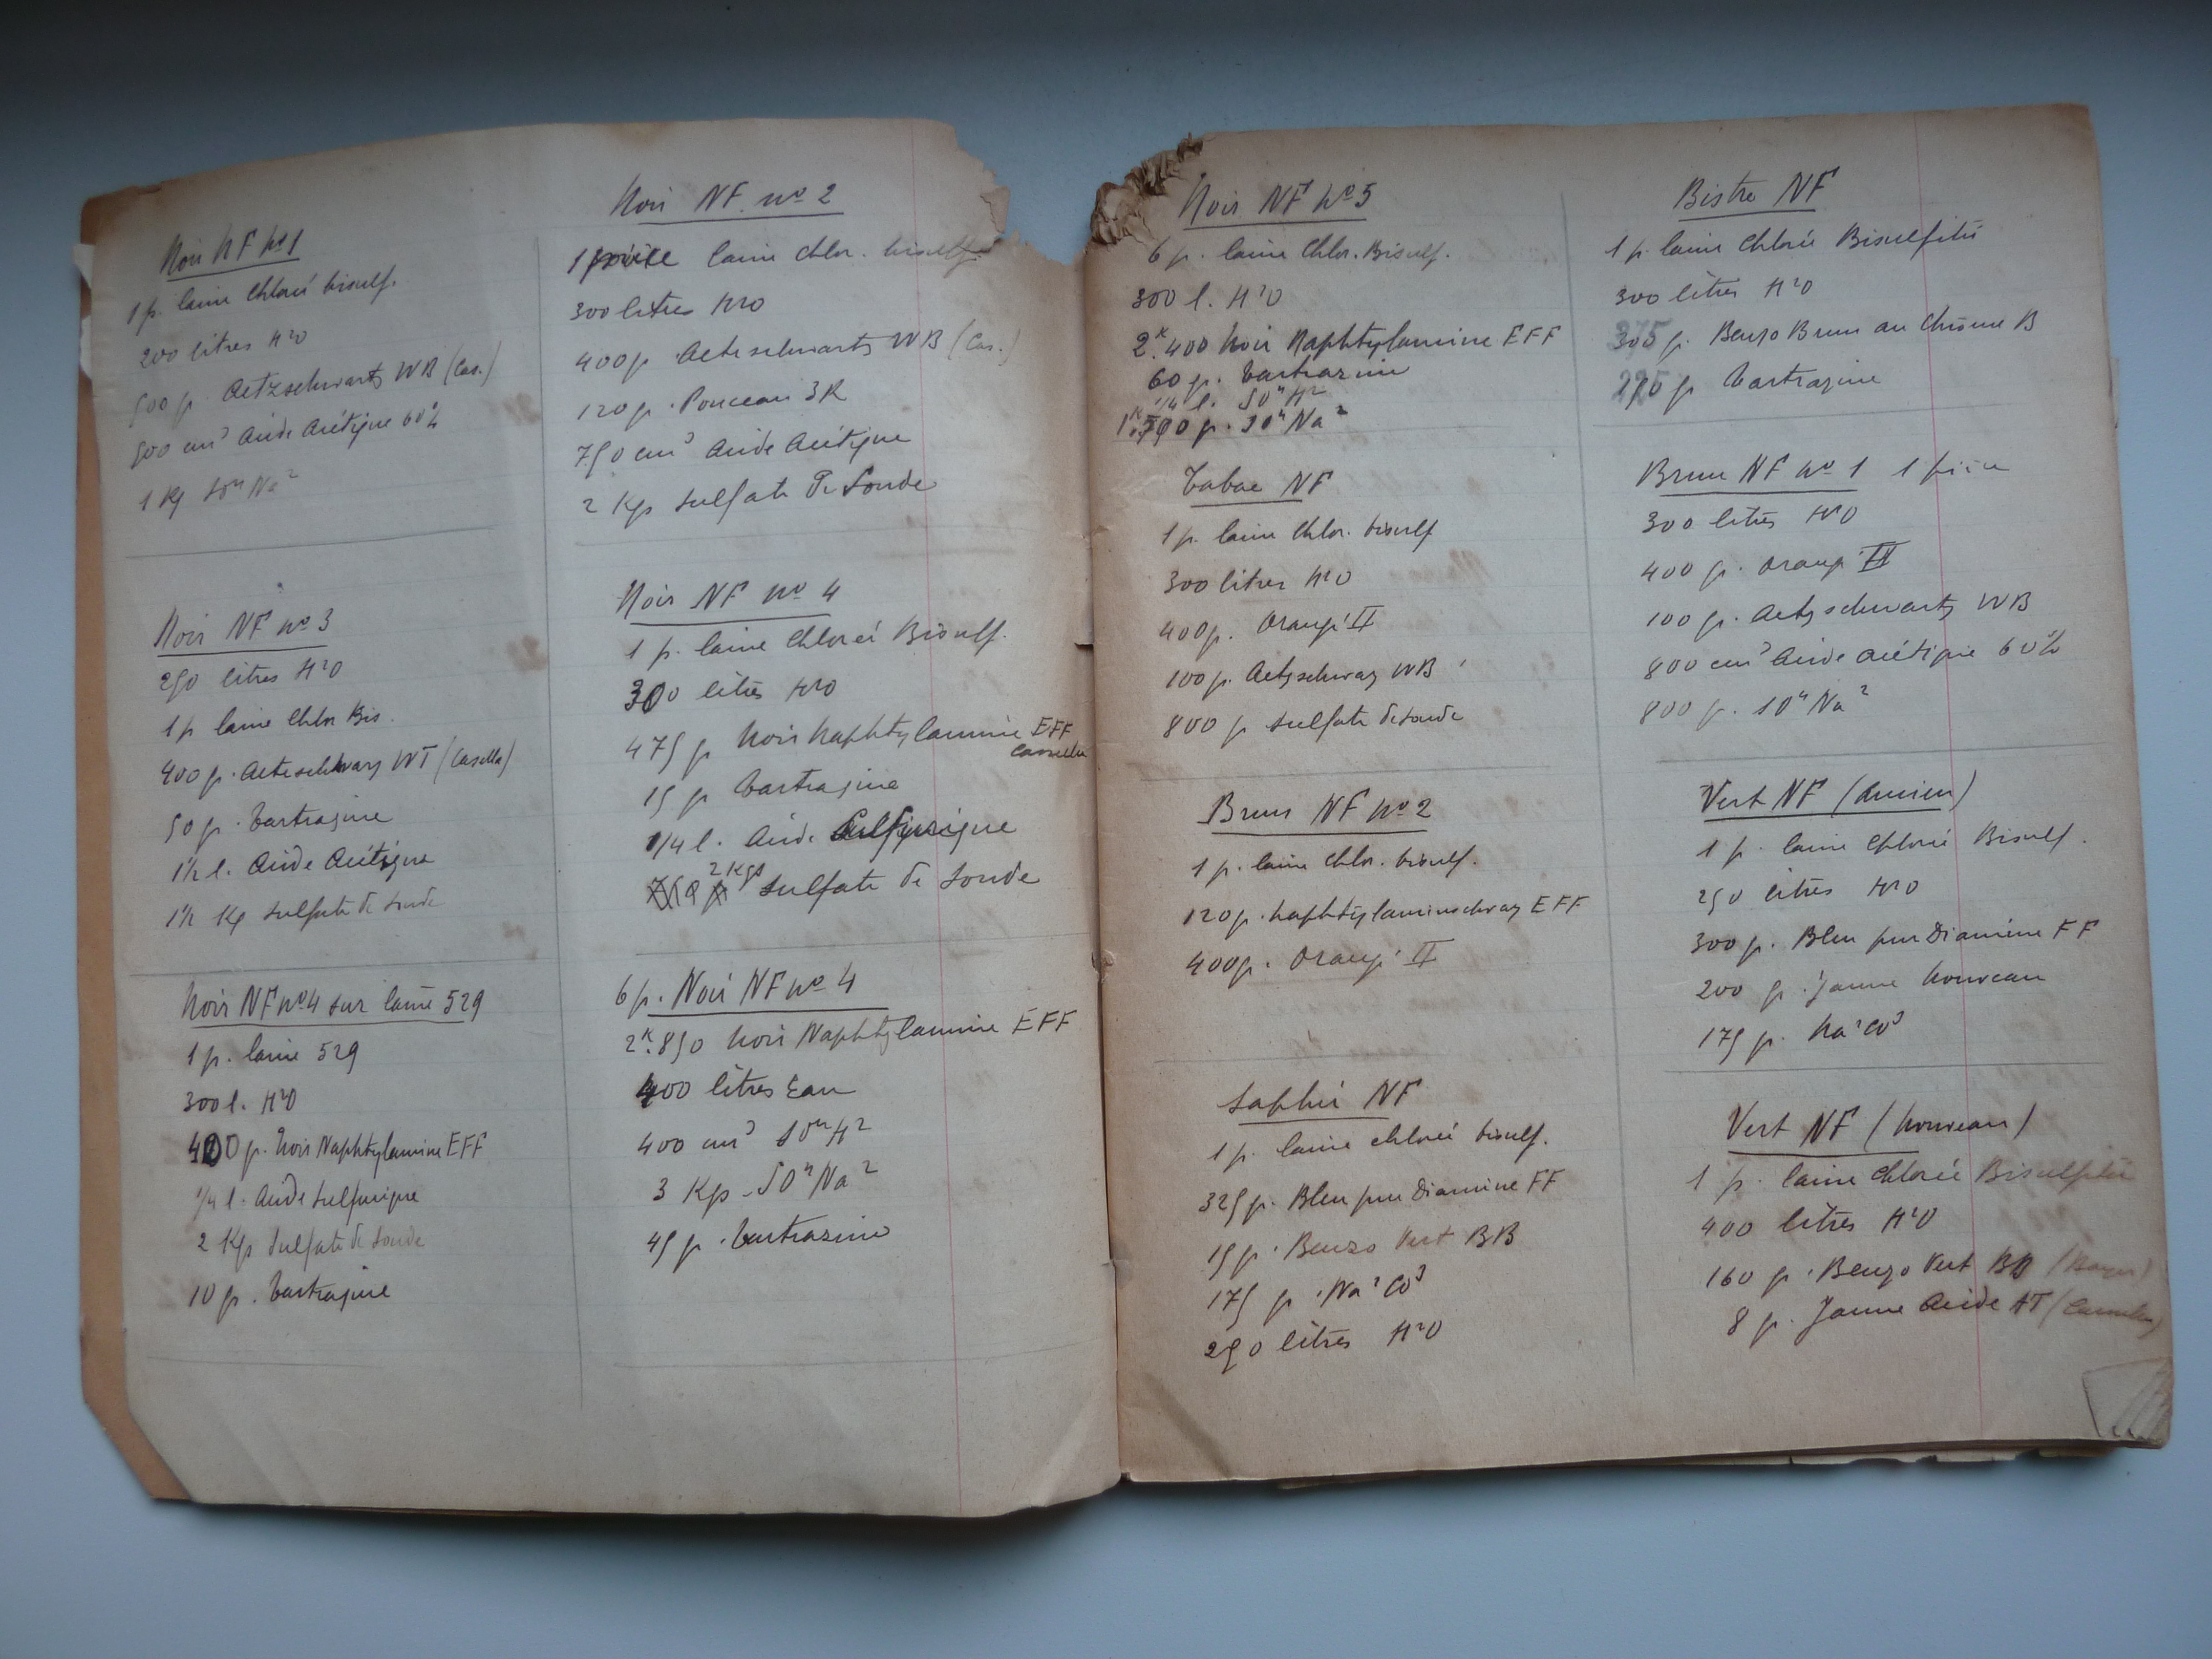 Noir NF No 1
1 p. laine Chlorée bisulf.
200 litres H²O
500 g. Aetzschwartz WB (Cas.)
500 cm³ Acide Acétique 60%
1 Kg SO⁴Na²
Noir NF no 2
1 pièce laine chlor. bisulf.
300 litres H²O
400 g Aetzschwartz WB (Cas.)
120 g. Ponceau 3R
750 cm³ Acide Acétique
2 Kgs sulfate de Soude
Noir NF no 3
250 litres H²O
1 p laine Chlor Bis.
400 g. Aetzschwarz WT (Casella)
50 g. Tartrazine
1/2 l. Acide Acétique
1 1/2 Kg sulfate de soude
Noir NF no 4
1 p. laine Chlorée Bisulf.
300 litres H²O
475 g Noir Naphtylamine EFF
Cassella
15 g Tartrazine
1/4 l. Acide Sulfurique
2 Kgs sulfate de soude
Noir NF no 4 sur laine 529
1 p. laine 529
300 l. H²O
400 g. Noir Naphtylamine EFF
1/4 l. Acide sulfurique
2 Kgs Sulfate de Soude
10 g. Tartrazine
6 p. Noir NF no 4
2K.850 Noir Naphtylamine EFF
400 litres Eau
400 cm³ SO⁴H²
3 Kgs SO⁴Na²
45 g. Tartrazine
Noir NF No 5
6 p. laine Chlor. Bisulf.
300 l. H²O
2K.400 Noir Naphtylamine EFF
60 g. Tartrazine
1/4 l. SO⁴H²
g. SO⁴Na²
Tabac NF
1 p. laine Chlor. bisulf
300 litres H²O
400 g. Orangé II
100 g. Aetzschwarz WB
800 g sulfate de soude
Brun NF no 2
1 p. laine Chlor. bisulf.
120 g. Naphtylaminschwarz EFF
400 g. Orangé II
Saphir NF
1 p. laine chlorée bisulf.
325 g. Bleu pur Diamine FF
15 g. Benzo Vert BB
175 g. Na²CO³
250 litres H²O
Bistre NF
1 p. laine Chlorée Bisulfitée
300 litres H²O
g. Benzo Brun au Chrome B
g Tartrazine
Brun NF no 1 1 pièce
300 litres H²O
400 g. Orangé II
100 g. Aetzschwartz WB
800 cm³ Acide acétique 60%
800 g. SO⁴Na²
Vert NF (Ancien)
1 p. laine Chlorée Bisulf.
250 litres H²O
300 g. Bleu pur Diamine FF
200 g. Jaune Nouveau
175 g. Na²CO³
Vert NF (Nouveau)
1 p. laine Chlorée Bisulfitée
400 litres H²O
160 g. Benzo Vert BB (Bayer)
8 g. Jaune Acide AT (Cassella)